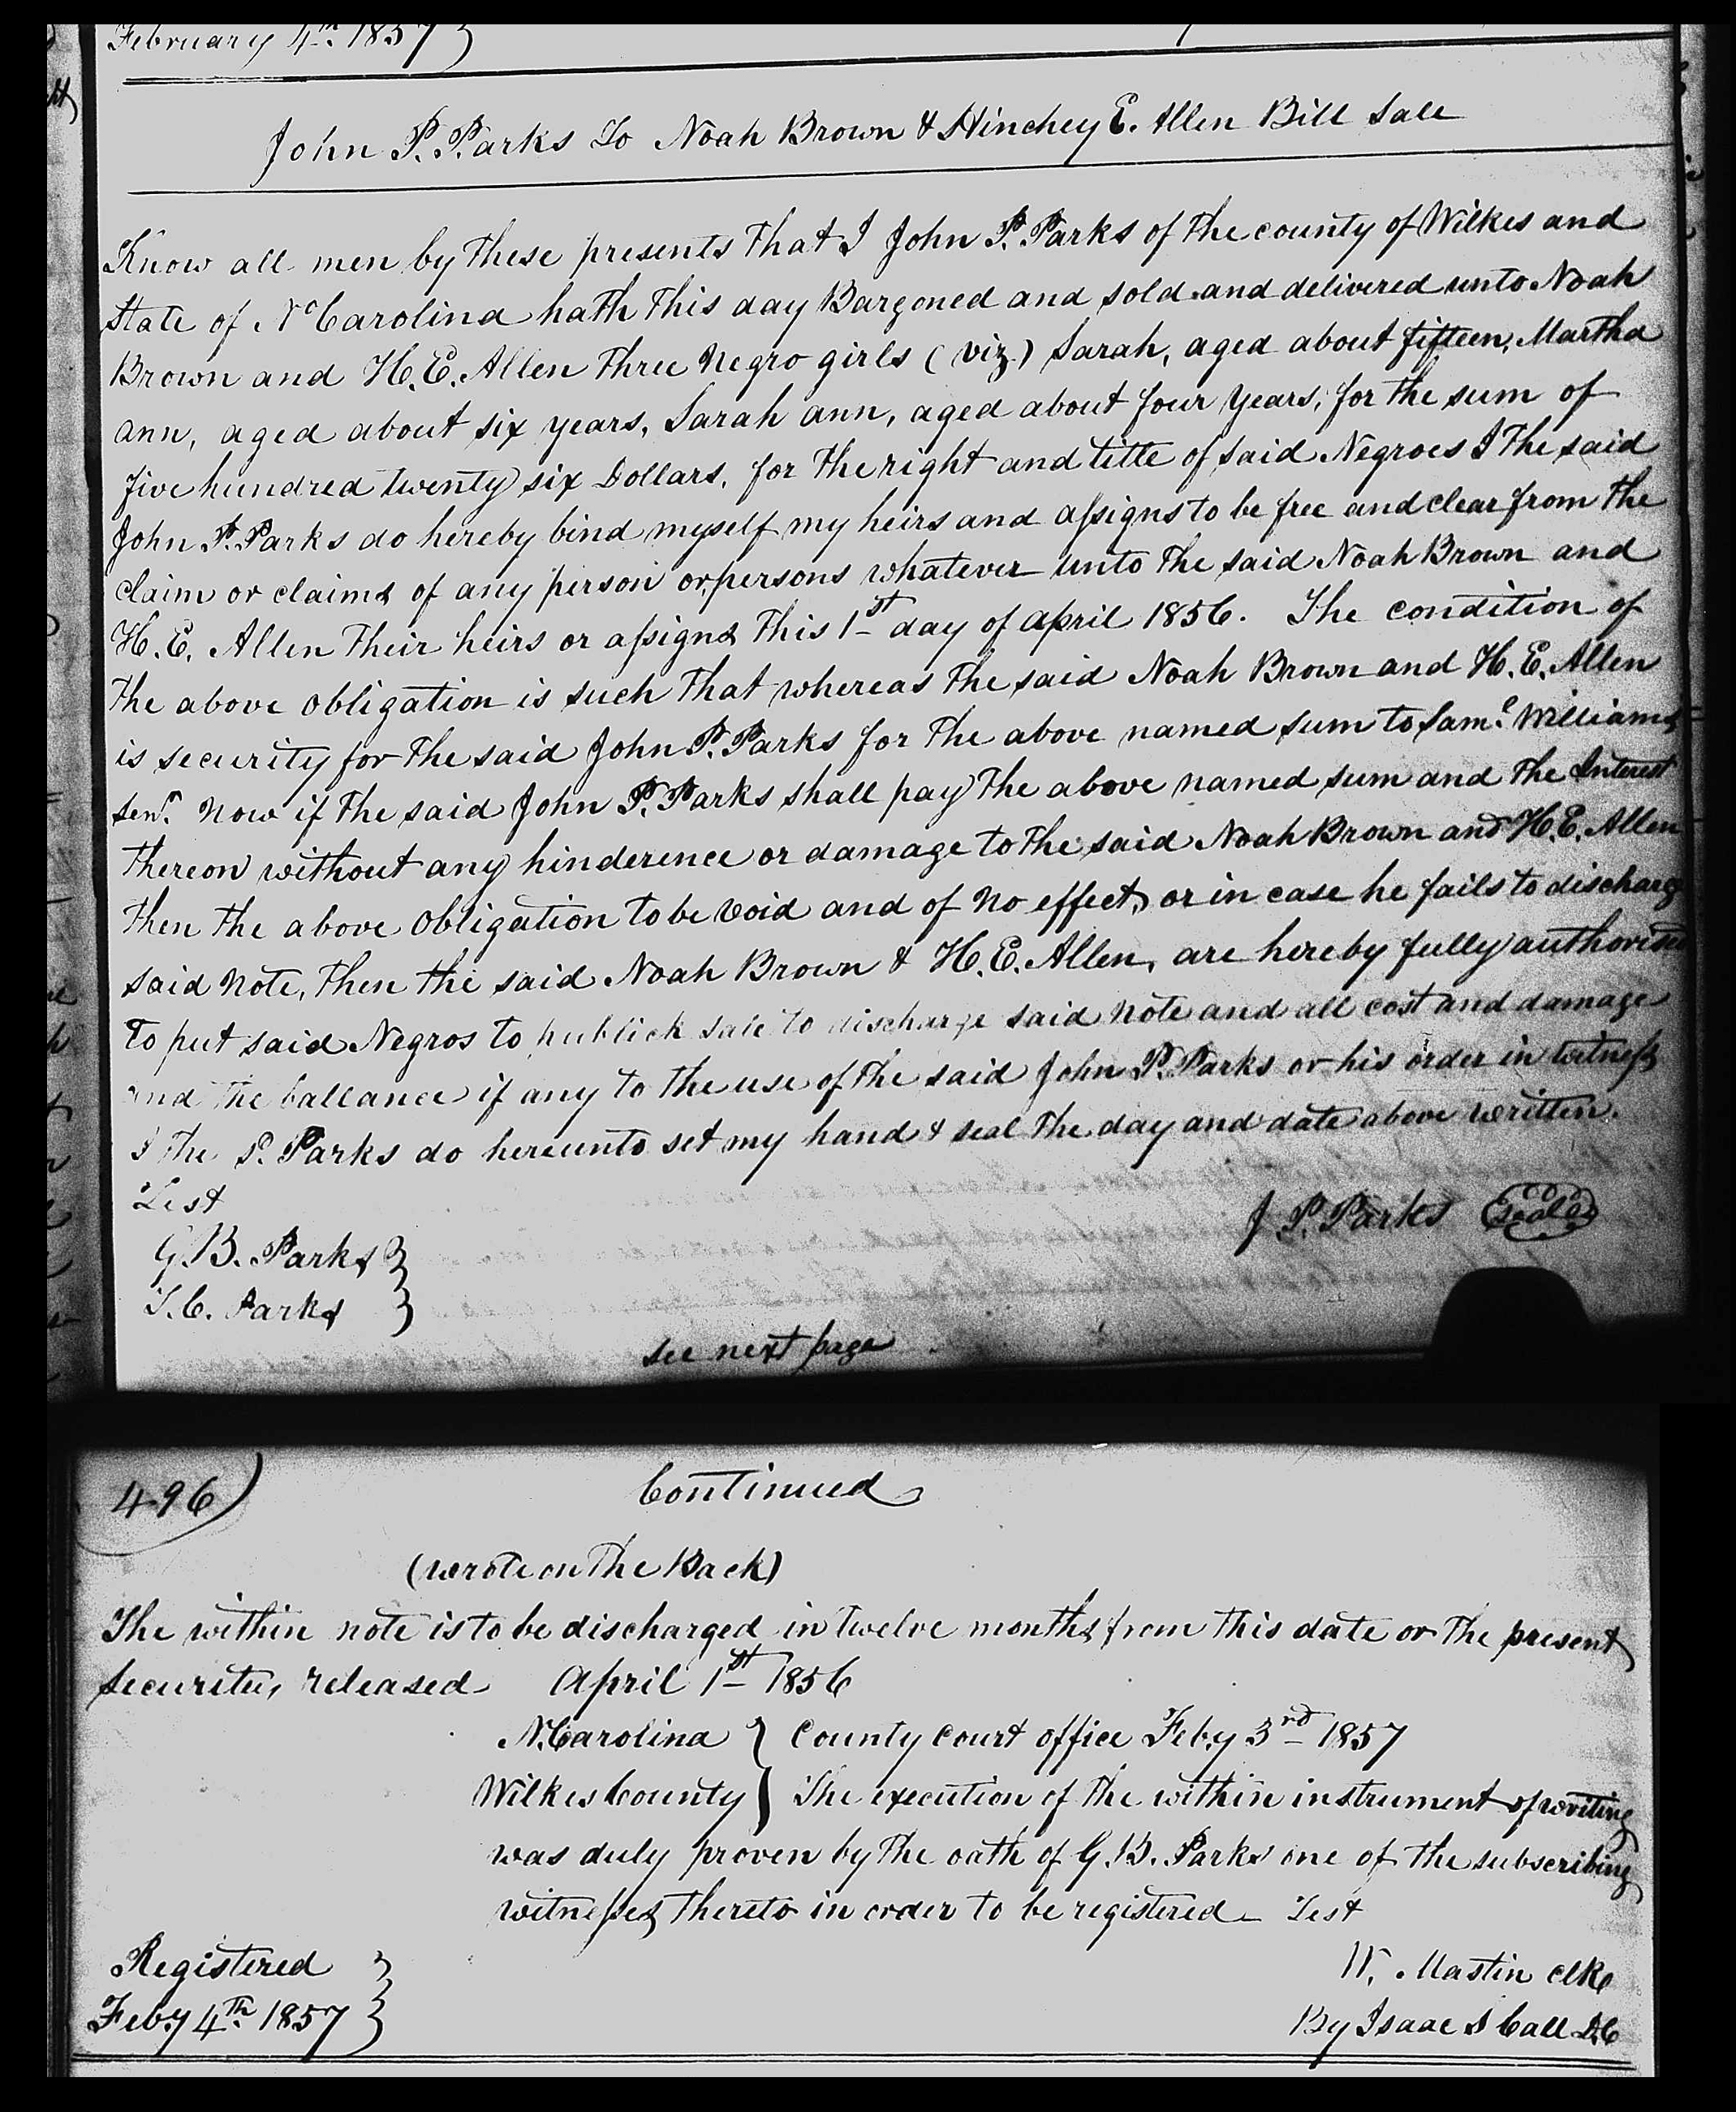 February 4th. 1857
John P. Parks To Noah Brown & Hinchey E. Allen Bill Sale
Know all men by these presents that I John P. Parks of the county of Wilkes and
State of No Carolina hath this day Bargoned and sold and delivered unto Noah
Brown and H. E. Allen three Negro girls (viz.) Sarah, aged about fifteen, Martha
ann, aged about six years, Sarah ann, aged about four years, for the sum of
five hundred twenty six Dollars, for the right and title of said Negroes I the said
John P. Parks do hereby bind myself my heirs and assigns to be free and clear from the
claim or claims of any person or persons whatever unto the said Noah Brown and
H. E. Allen their heirs or assigns this 1st day of april 1856. The condition of
the above obligation is such that whereas the said Noah Brown and H. E. Allen
is security for the said John P. Parks for the above named sum to Saml. Williams
senr. Now if the said John P. Parks shall pay the above named sum and the Interest
thereon without any hinderence or damage to the said Noah Brown and H. E. Allen
then the above obligation to be void and of no effect, or in case he fails to discharg
said note, then the said Noah Brown & H. E. Allen, are hereby fully authorised
to put said Negros to publick sale to discharge said note and all cost and damage
and the ballance if any to the use of the said John P. Parks or his order in witness
I the P. Parks do hereunto set my hand & seal the day and date above written.
Test
J P. Parks Seal
G. B. Parks
T. C. Parks
see next page
496) Continued
(wrote on the Back)
The within note is to be discharged in twelve months from this date or the present
securitu, released April 1st 1856
N. Carolina } County Court office Feby 3rd 1857
Wilkes County } The execution of the within instrument of writing
was duly proven by the oath of G. B. Parks one of the subscribing
witnesses thereto in order to be registered Test
Registered W. Mastin clk
Feby 4th. 1857 By Isaac S Call DC